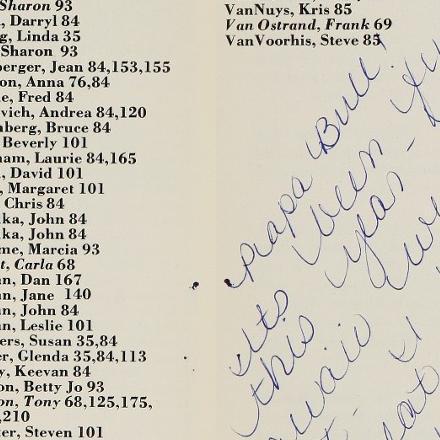 Sharon 93
, Darryl 84
g, Linda 35
Sharon 93
berger, Jean 84,153,155
on, Anna 76,84
e, Fred 84
vich, Andrea 84,120
nberg, Bruce 84
Beverly 101
am, Laurie 84,165
, David 101
, Margaret 101
Chris 84
ka, John 84
ka, John 84
me, Marcia 93
t, Carla 68
n, Dan 167
n, Jane 140
n, John 84
n, Leslie 101
ers, Susan 35,84
er, Glenda 35,84,113
y, Keevan 84
on, Betty Jo 93
on, Tony 68,125,175,
,210
ter, Steven 101
VanNuys, Kris 85
Van Ostrand, Frank 69
VanVoorhis, Steve 85
Papa Bull!
Its been
this year -